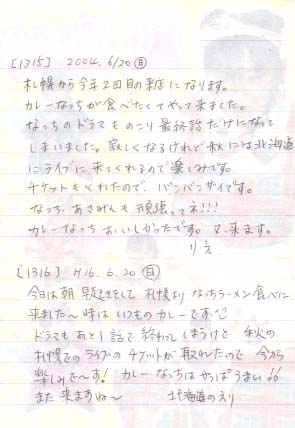 [1315] 2004.6/20(日)
札幌から今年2回目の来店になります。
カレーなっちが食べたくてやって来ました。
なっちのドラマものこり最終話だけになって
しまいました。寂しくなるけれど秋には北海道
にライブに来てくれるので楽しみです。
チケットもとれたので、バンバンザイです。
なっち、あさみんも頑張ってネ!!!
カレーなっちおいしかったです。又、来ます。
りえ
[1316] H16.6.20(日)
今日は朝早起きをして札幌よりなっちラーメン食べに
来ました〜味はいつものカレーです
ドラマもあと1話で終わってしまうけど秋の
札幌でのライブのチケットが取れたので今から
楽しみで〜す! カレーなっちはやっぱうまい!!
また来ますね〜 北海道のえり